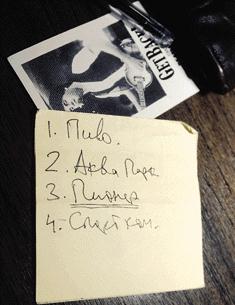 GET BACK
1. Пиво.
2. Аква Парк
3. Пионер
4. Спорт ком.